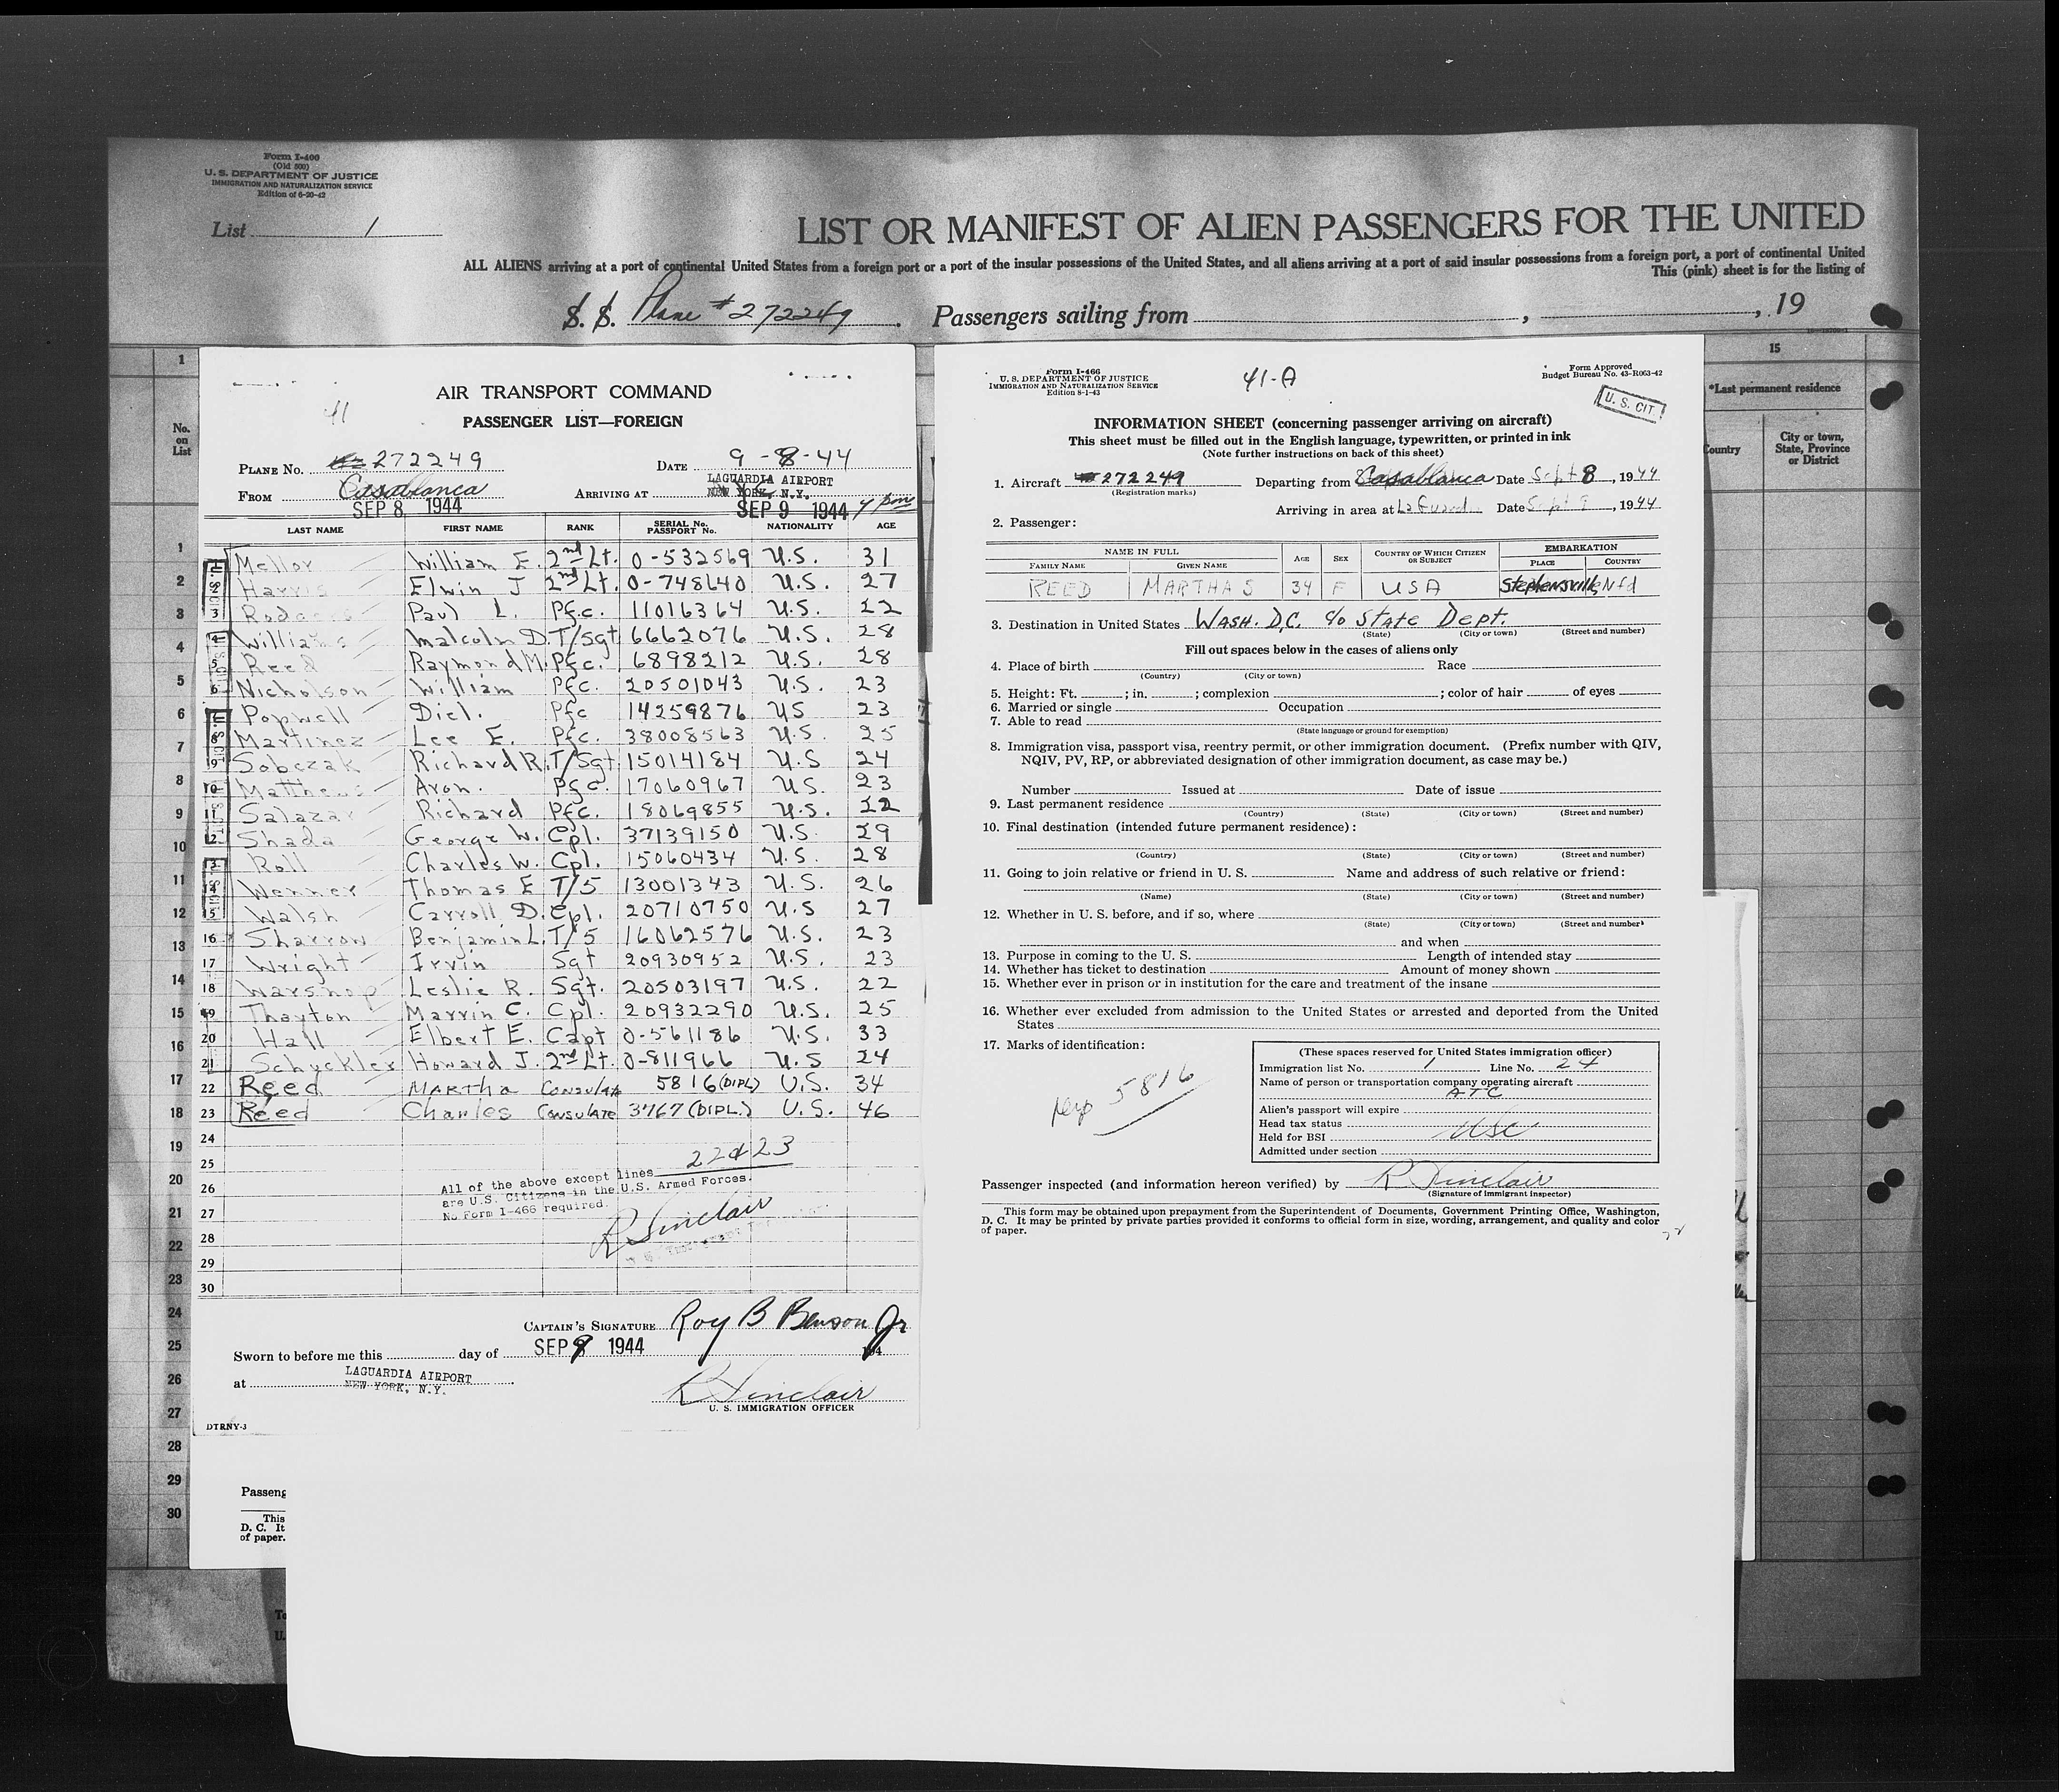 Form I-400
(Old 500)
U. S. DEPARTMENT OF JUSTICE
IMMIGRATION AND NATURALIZATION SERVICE
Edition of 6-20-42
List 1
LIST OR MANIFEST OF ALIEN PASSENGERS FOR THE UNITED
ALL ALIENS arriving at a port of continental United States from a foreign port or a port of the insular possessions of the United States, and all aliens arriving at a port of said insular possessions from a foreign port, a port of continental United
This (pink) sheet is for the listing of
S. S. Plane # 272249. Passengers sailing from , , 19
1
No.
on
List
AIR TRANSPORT COMMAND
41
PASSENGER LIST—FOREIGN
PLANE NO. 272249 DATE 9-8-44
FROM Casablanca ARRIVING AT LAGUARDIA AIRPORT
NEW YORK, N.Y.
SEP 8 1944 SEP 9 1944 4 pm
LAST NAME FIRST NAME RANK SERIAL NO. PASSPORT NO. NATIONALITY AGE
1 Mellor William E. 2nd Lt. 0-532569 U.S. 31
2 Harris Elwin J 2nd Lt. 0-748640 U.S. 27
3 Paul L. Pfc. 11016364 U.S. 22
4 Williams Malcolm D T/Sgt 6662076 U.S. 28
5 Reed Raymond M. Pfc. 6898212 U.S. 28
6 Nicholson William Pfc. 20501043 U.S. 23
Popwell Diel. Pfc 14259876 US 23
8 Martinez Lee E. Pfc. 38008563 U.S. 25
9 Sobczak Richard R. T/Sgt 15014184 U.S 24
10 Matthews Aron. Pfc. 17060967 U.S. 23
11 Salazar Richard Pfc. 18069855 U.S. 22
12 Shada George W. Cpl. 37139150 U.S. 29
13 Roll Charles W. Cpl. 15060434 U.S. 28
14 Wenner Thomas E T/5 13001343 U.S. 26
15 Walsh Carroll D. Cpl. 20710750 U.S 27
16 Sharrow Benjamin L. T/5 16062576 U.S. 23
17 Wright Irvin Sgt 20930952 U.S. 23
18 Warshop Leslie R. Sgt. 20503197 U.S. 22
19 Thayton Marrin C. Cpl. 20932290 U.S. 25
20 Hall Elbert E. Capt 0-561186 U.S. 33
21 Schuckler Howard J. 2nd Lt. 0-811966 U.S 24
22 Reed MARTHA Consulate 5816 (DIPL) U.S. 34
23 Reed Charles Consulate 3767 (DIPL.) U.S. 46
24
25
26
27
28
29
30
22 & 23
All of the above except lines
are U.S. Citizens in the U.S. Armed Forces.
No Form I-466 required.
R Sinclair
CAPTAIN'S SIGNATURE Roy B Benson Jr
Sworn to before me this day of SEP 9 1944 194
at LAGUARDIA AIRPORT
NEW YORK, N.Y.
R Sinclair
U. S. IMMIGRATION OFFICER
DTRNY-3
Passeng
This
D. C. It
of paper.
1
2
3
4
5
6
7
8
9
10
11
12
13
14
15
16
17
18
19
20
21
22
23
24
25
26
27
28
29
30
To
U.
Form I-466
U. S. DEPARTMENT OF JUSTICE
IMMIGRATION AND NATURALIZATION SERVICE
Edition 8-1-43
41-A
Form Approved
Budget Bureau No. 43-R063-42
U. S. CIT
INFORMATION SHEET (concerning passenger arriving on aircraft)
This sheet must be filled out in the English language, typewritten, or printed in ink
(Note further instructions on back of this sheet)
1. Aircraft 272249 Departing from Casablanca Date Sept 8, 1944
(Registration marks)
Arriving in area at La Guard. Date Sept 9, 1944
2. Passenger:
NAME IN FULL AGE SEX COUNTRY OF WHICH CITIZEN OR SUBJECT EMBARKATION
FAMILY NAME GIVEN NAME PLACE COUNTRY
REED MARTHA S 34 F USA Stephensville Nfd
3. Destination in United States WASH. D.C. c/o State Dept.
(State) (City or town) (Street and number)
Fill out spaces below in the cases of aliens only
4. Place of birth Race
(Country) (City or town)
5. Height: Ft. ; in. ; complexion ; color of hair of eyes
6. Married or single Occupation
7. Able to read
(State language or ground for exemption)
8. Immigration visa, passport visa, reentry permit, or other immigration document. (Prefix number with QIV,
NQIV, PV, RP, or abbreviated designation of other immigration document, as case may be.)
Number Issued at Date of issue
9. Last permanent residence
(Country) (State) (City or town) (Street and number)
10. Final destination (intended future permanent residence):
(Country) (State) (City or town) (Street and number)
11. Going to join relative or friend in U. S. Name and address of such relative or friend:
(Name) (State) (City or town) (Street and number)
12. Whether in U. S. before, and if so, where
(State) (City or town) (Street and number)
and when
13. Purpose in coming to the U. S. Length of intended stay
14. Whether has ticket to destination Amount of money shown
15. Whether ever in prison or in institution for the care and treatment of the insane
16. Whether ever excluded from admission to the United States or arrested and deported from the United
States
17. Marks of identification:
5816
(These spaces reserved for United States immigration officer)
Immigration list No. 1 Line No. 24
Name of person or transportation company operating aircraft
ATC
Alien's passport will expire
Head tax status
Held for BSI USC
Admitted under section
Passenger inspected (and information hereon verified) by R Sinclair
(Signature of Immigrant Inspector)
This form may be obtained upon prepayment from the Superintendent of Documents, Government Printing Office, Washington,
D. C. It may be printed by private parties provided it conforms to official form in size, wording, arrangement, and quality and color
of paper.
15
*Last permanent residence
Country
City or town,
State, Province
or District